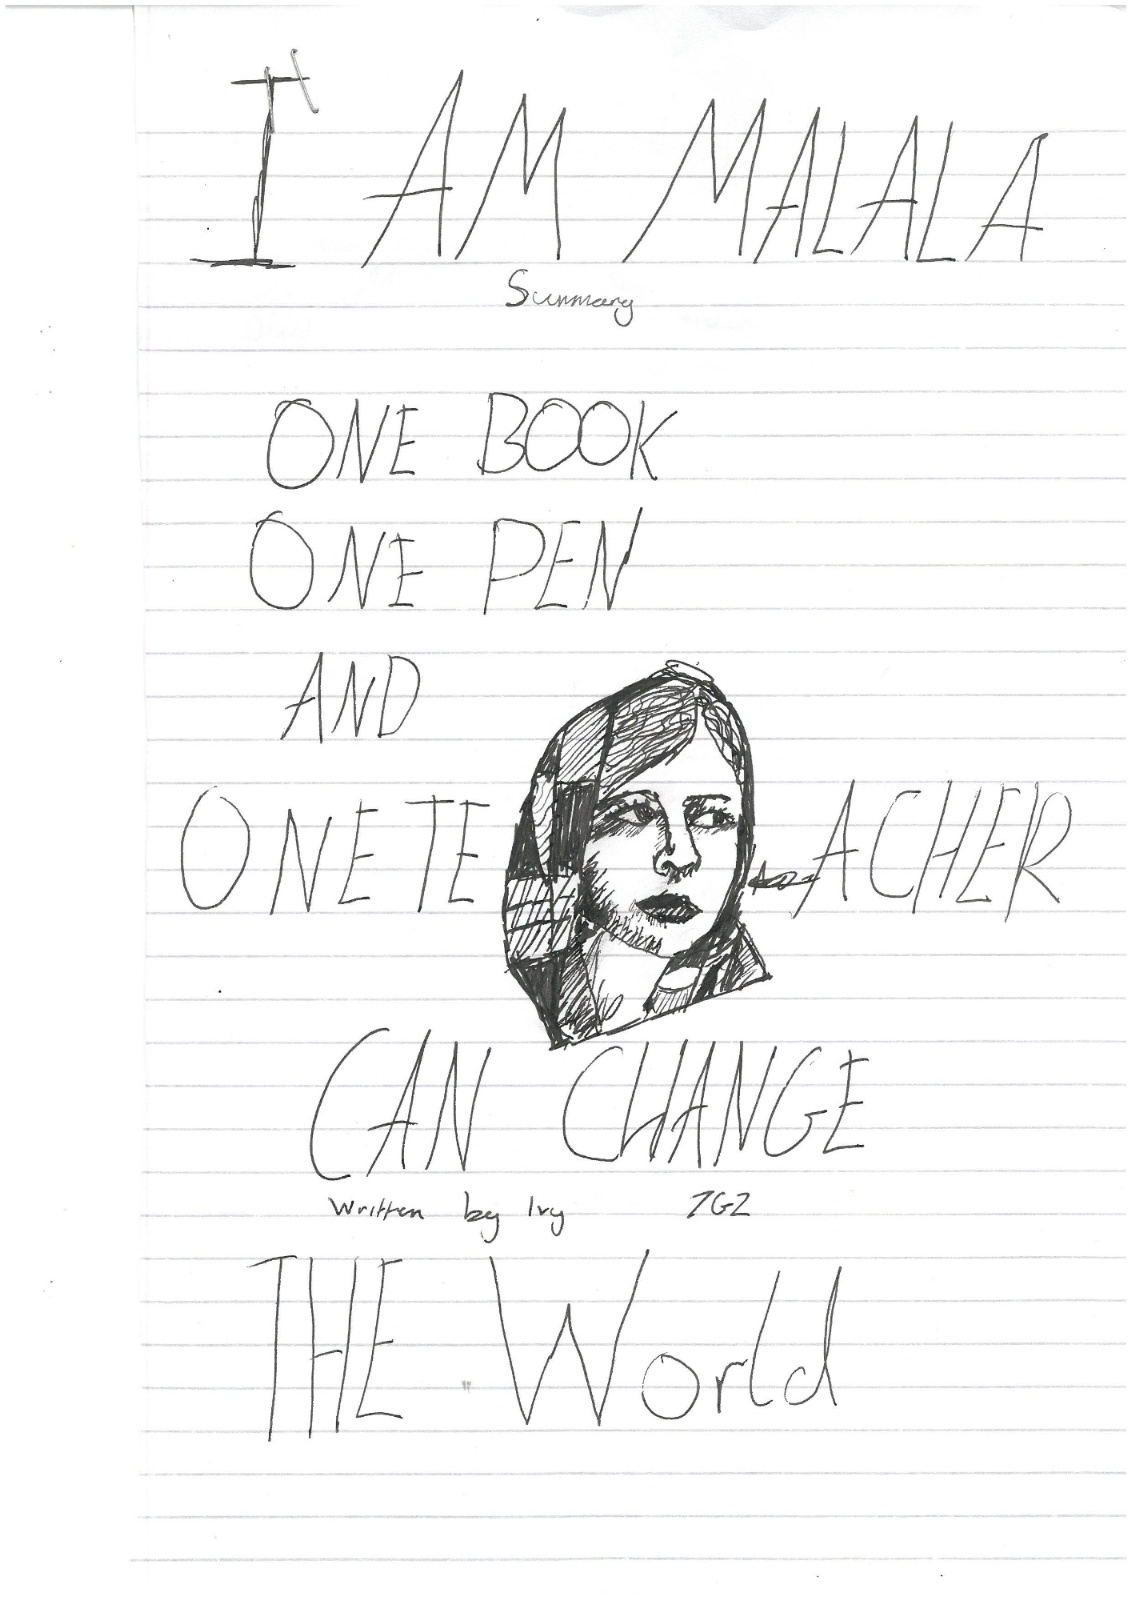 I AM MALALA
Summary
ONE BOOK
ONE PEN
AND
ONE TEACHER
CAN CHANGE
Written by Ivy 7G2
THE World